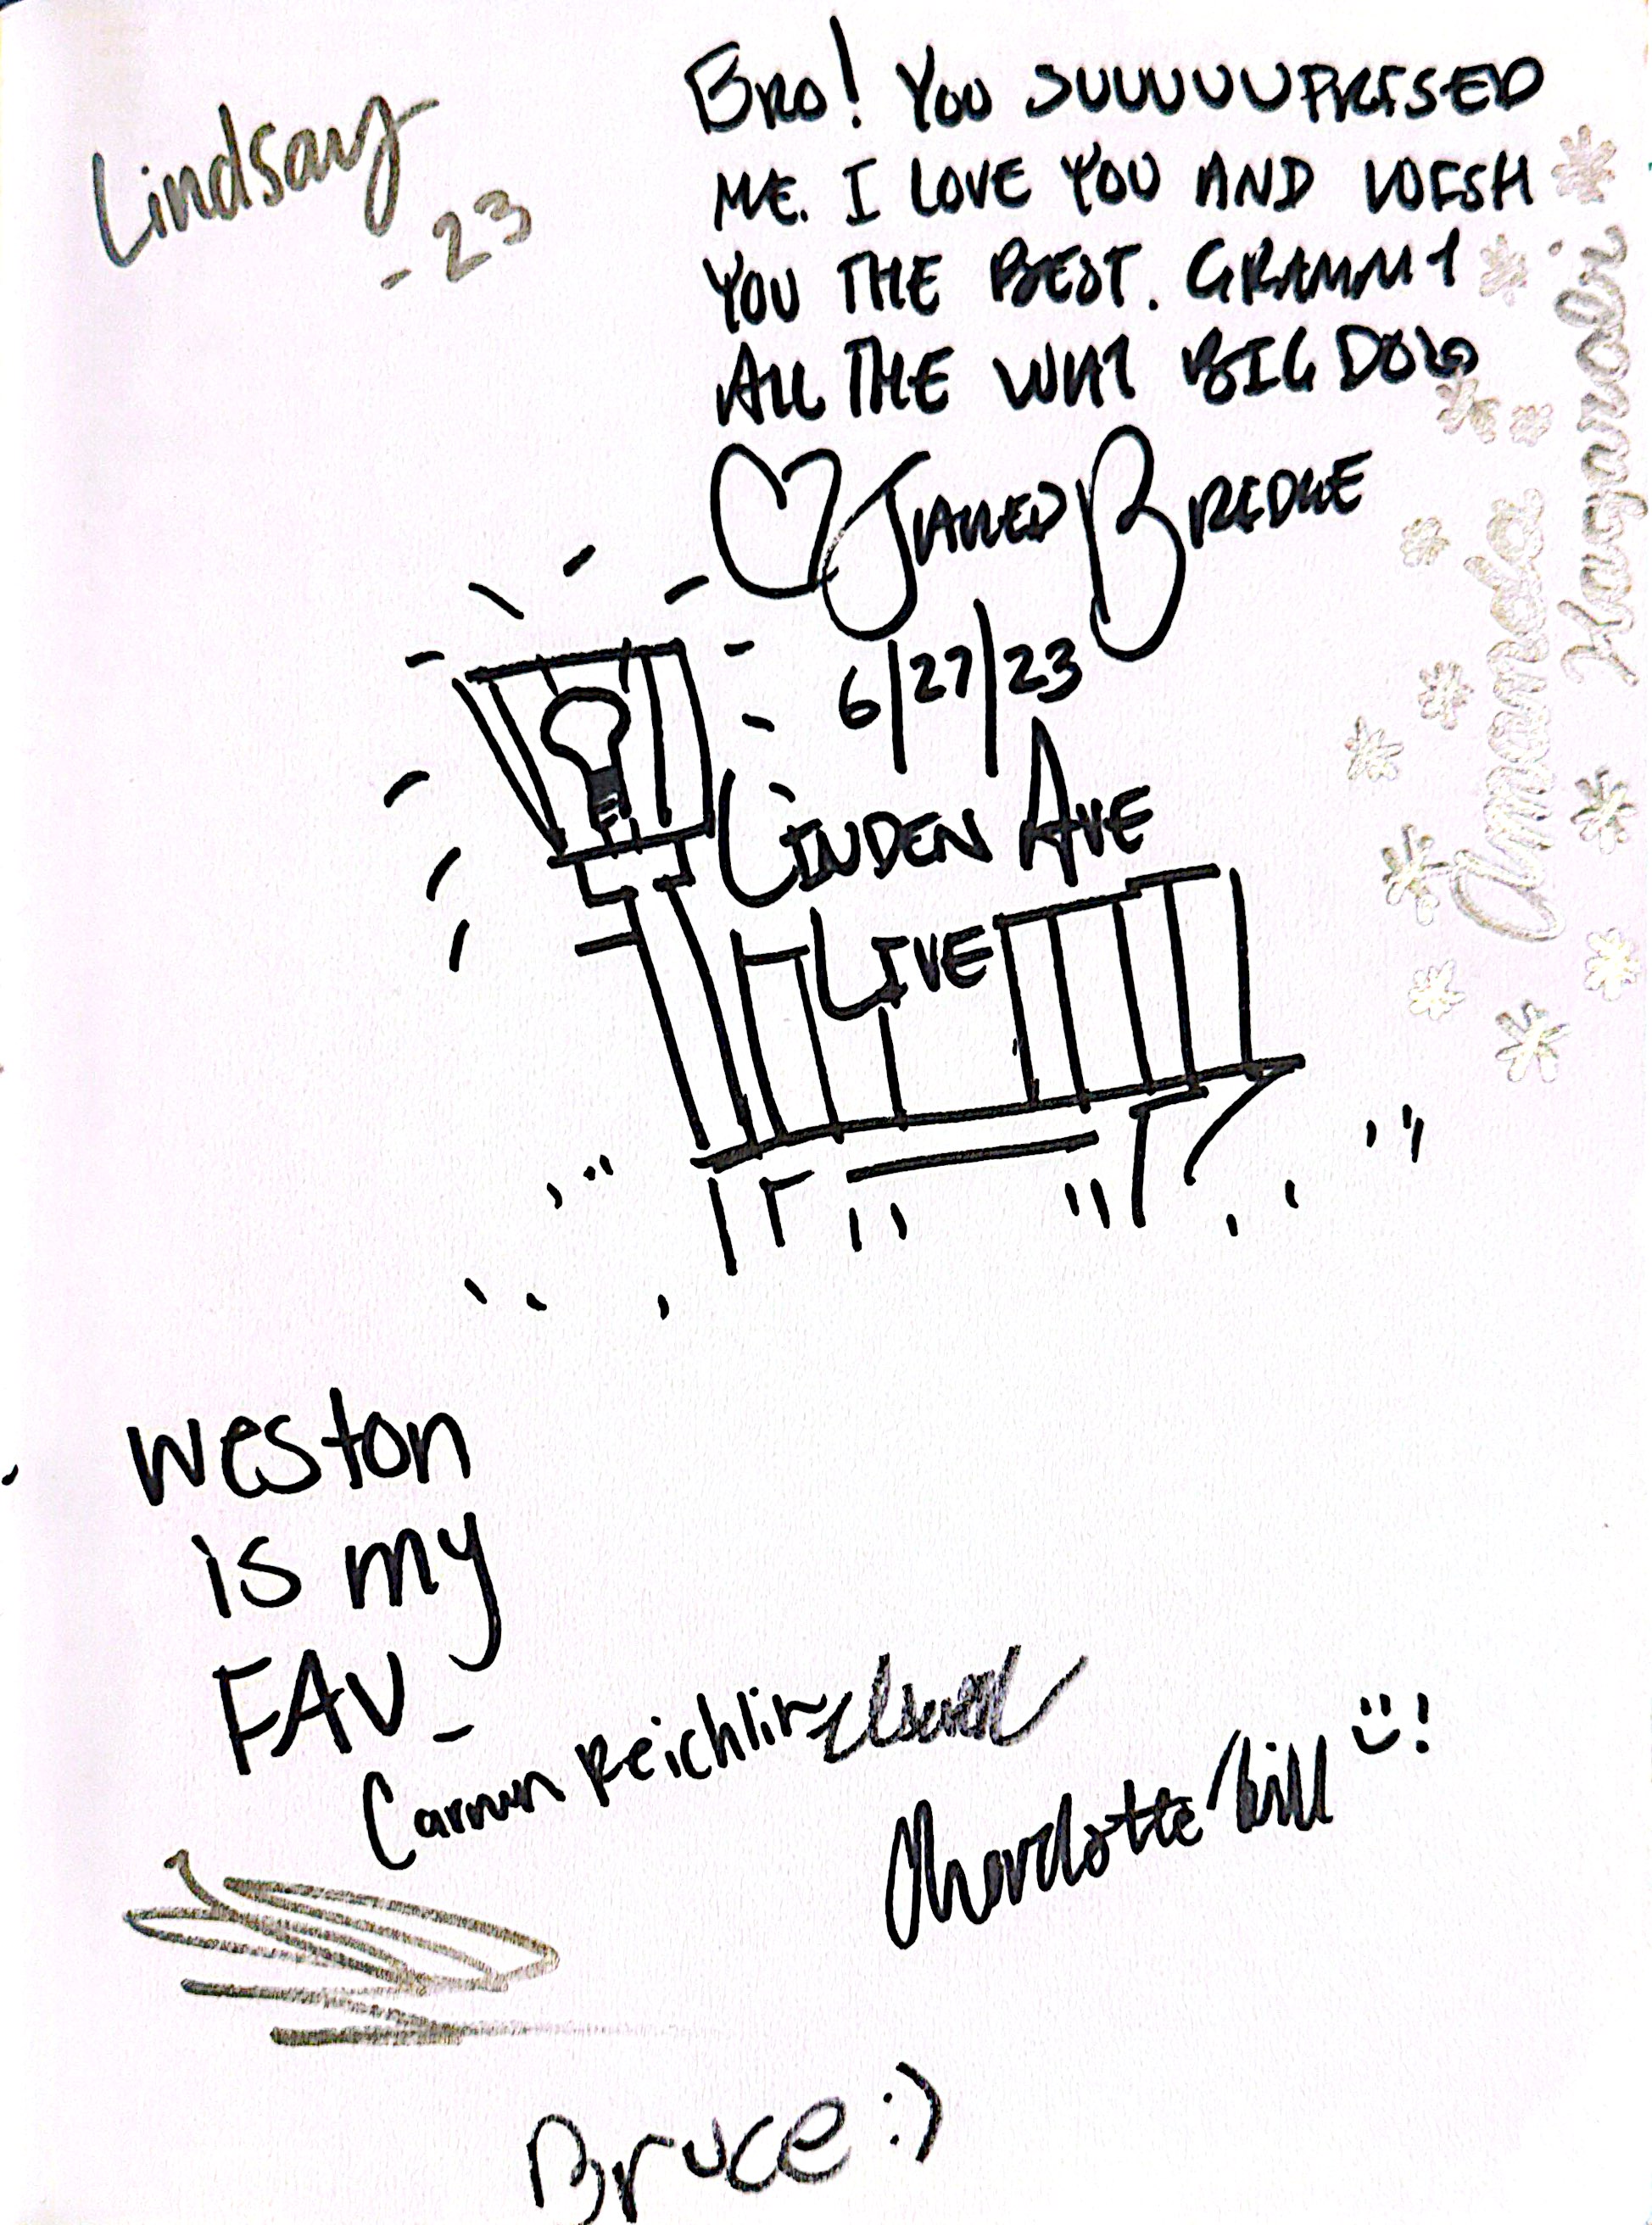 Lindsay
-23
BRO! YOU SUUUUUPRISED
ME. I LOVE YOU AND WISH
YOU THE BEST. GRAMMY
ALL THE WAY BIG DOG
JARED BRIDGE
6/27/23
LINDEN AVE
LIVE
Amanda
Weston
is my
FAV -
Carmen Reichlin
Charlotte Hill :)!
Bruce :)